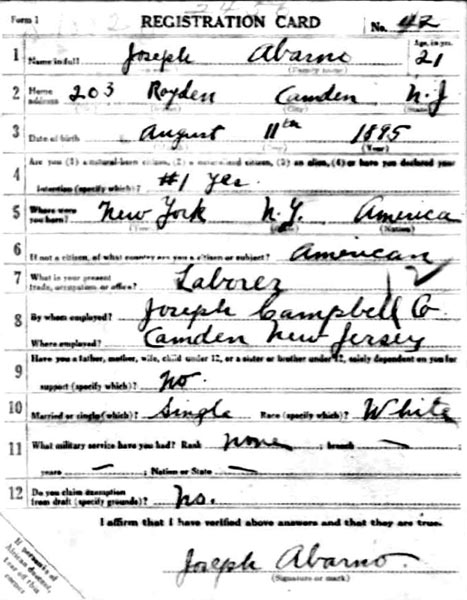 Form 1 REGISTRATION CARD No. 42
1 Joseph Abarno Age, in yrs. 21
Name in full (Family name)
2 Home address 203 Royden Camden N.J.
(City) (State)
3 Date of birth August 11th 1895
(Year)
4 Are you (1) a natural-born citizen, (2) a naturalized citizen, (3) an alien, (4) or have you declared your
intention (specify which)? #1 yes.
5 Where were you born? New York N.Y. America
(Nation)
6 If not a citizen, of what country are you a citizen or subject? American
7 What is your present trade, occupation or office? Laborer
8 By whom employed? Joseph Campbell Co
Where employed? Camden New Jersey
9 Have you a father, mother, wife, child under 12, or a sister or brother under 12, solely dependent on you for
support (specify which)? no.
10 Married or single (which)? Single Race (specify which)? White
11 What military service have you had? Rank none ; branch —
years — ; Nation or State —
12 Do you claim exemption from draft (specify grounds)? No.
I affirm that I have verified above answers and that they are true.
Joseph Abarno.
(Signature or mark)
If person is of
African descent,
tear off this
corner